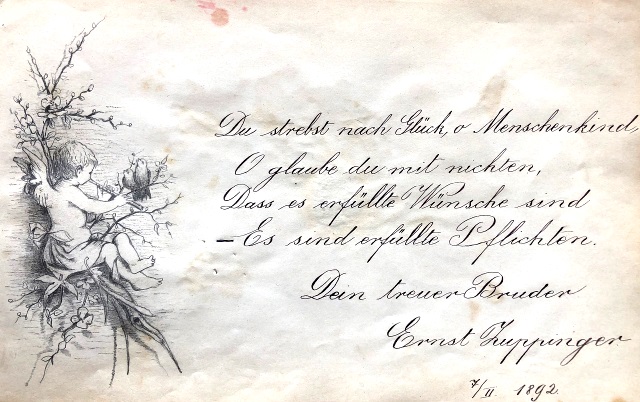 Du strebst nach Glück, o Menschenkind,
O glaube du mit nichten,
Dass es erfüllte Wünsche sind
– Es sind erfüllte Pflichten.
Dein treuer Bruder
Ernst Zuppinger
7/II. 1892